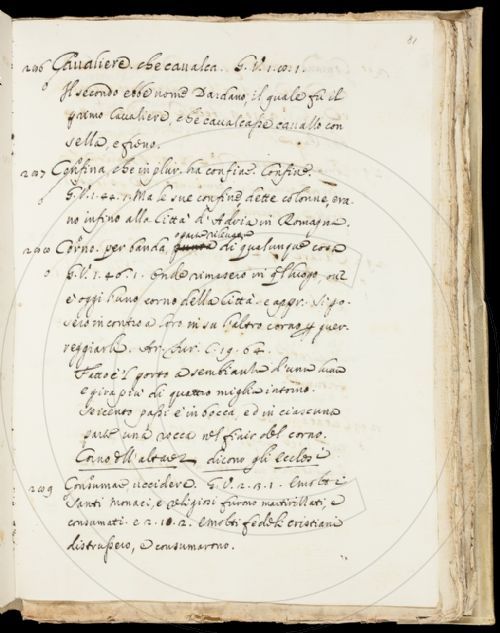 81
Cavaliere. che caualca. G.V.1.
Il secondo ebbe nome Dardano, il quale fù il
primo Caualiere, che caualcasse cauallo con
sella, e freno.
Confina, che in plur. ha confine. Confine.
G.V.1.44.1. Ma le sue confine dette colonne, era-
no infino alla Città d'Adria in Romagna.
Corno. per banda, di qualunque cosa
G.V.1. onde rimasero in quel luogo, ou'
è oggi l'uno corno della Città. e appr. Si po-
sero incontro a loro in su l'altro corno per guer-
reggiarli. Ar. Fur. C.19.64.
Fatto è 'l porto a sembianza d'una luna
e gira più di quattro miglia intorno.
Seicento passi è in bocca, ed in ciascuna
parte una rocca nel finir del corno.
Corno dell'altare dicono gli
Consumare uccidere. G.V.2. e molti
santi monaci, e religiosi furono martirizzati, e
consumati. e 2.10.2. e molti fedeli cristiani
distrussero, e consumarono.